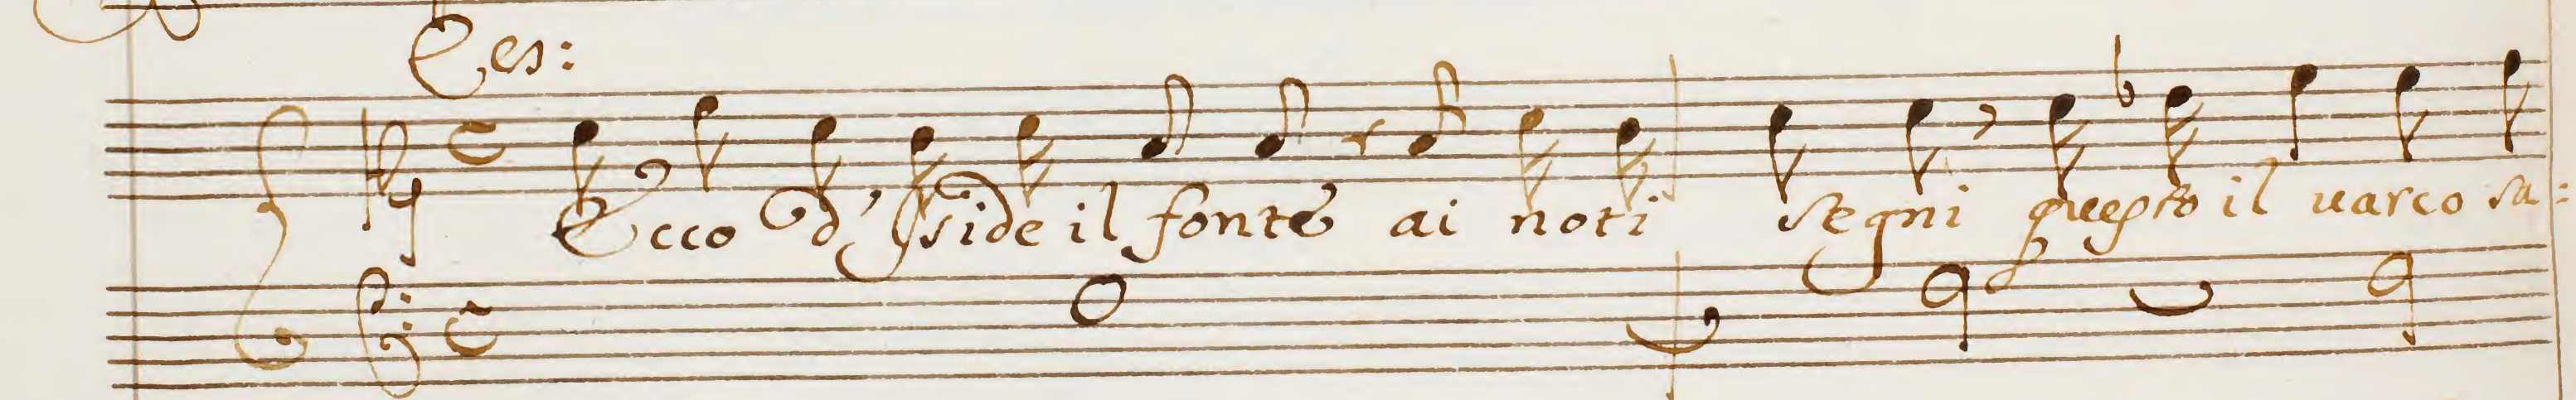 Ces:
Ecco d'Iside il fonte ai noti segni questo il uarco sa=